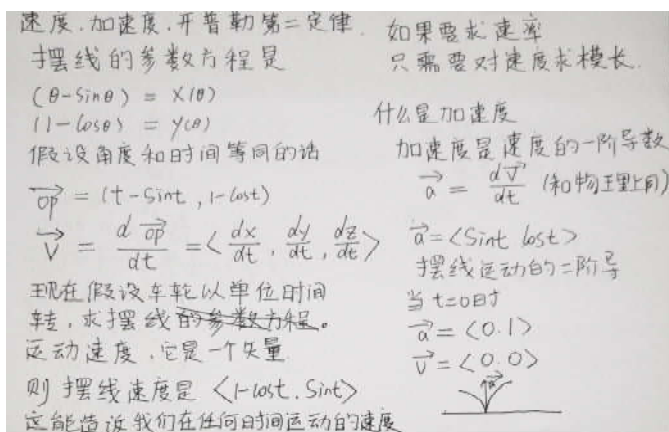 速度.加速度.开普勒第二定律.
摆线的参数方程是
(θ-Sinθ) = X(θ)
(1-Cosθ) = Y(θ)
假设角度和时间等同的话
\vec{OP} = (t-Sint, 1-Cost)
\vec{V} = \frac{d\vec{OP}}{dt} = <\frac{dx}{dt}, \frac{dy}{dt}, \frac{dz}{dt}>
现在假设车轮以单位时间
转,求摆线的参数方程。
运动速度,它是一个矢量
则 摆线速度是 <1-Cost, Sint>
这能告诉我们在任何时间运动的速度
如果要求速率
只需要对速度求模长.
什么是加速度
加速度是速度的一阶导数
\vec{a} = \frac{d\vec{V}}{dt} (和物理上同)
\vec{a} = <Sint Cost>
摆线运动的二阶导
当 t=0时
\vec{a} = <0.1>
\vec{V} = <0.0>